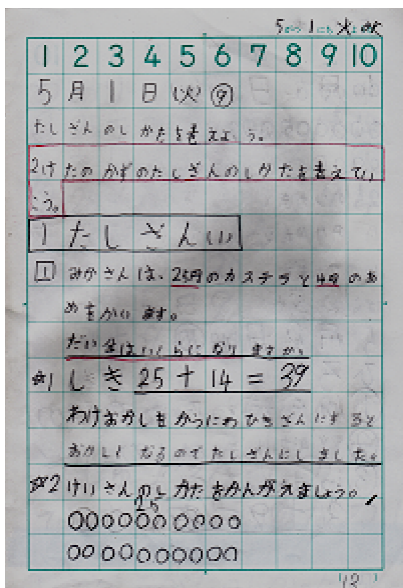 5がつ1にち火よう
1 2 3 4 5 6 7 8 9 10
5月1日(火)⑨
たしざんのしかたを考えよう。
2けたのかずのたしざんのしかたを考えてい
こう。
1たしざん(1)
1 みかさんは、25円のカステラと14円のあ
めをかいます。
だい金はいくらになりますか。
#1 しき 25+14=39
わけ おかしをかうにわひきざんにすると
おかしくなるのでたしざんにしました。
#2 けいさんのしかたをかんがえましょう。
25
○○○○○○○○○○
○○○○○○○○○○